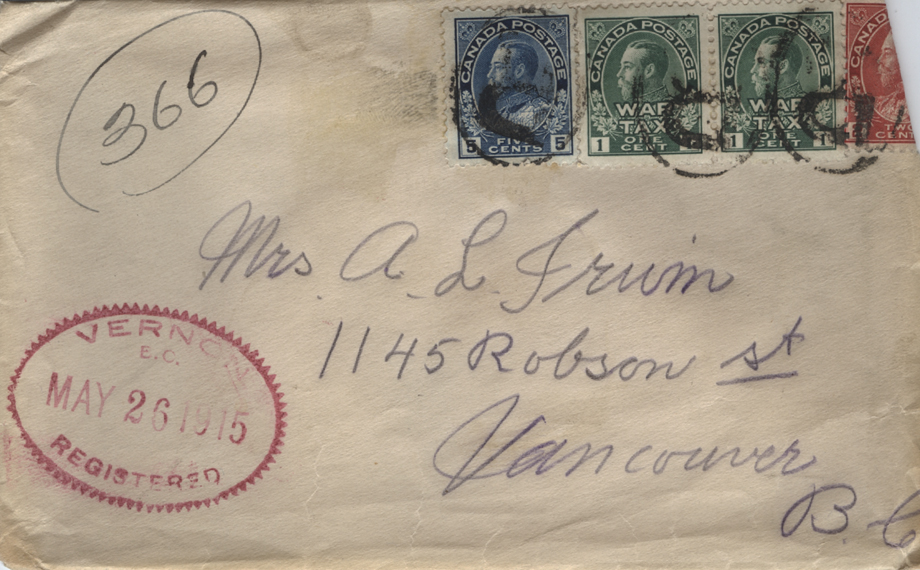 366
CANADA POSTAGE
FIVE
5 CENTS 5
CANADA POSTAGE
WAR
TAX
1 ONE 1
CENT
CANADA POSTAGE
WAR
TAX
1 ONE 1
CENT
CANADA
TWO
CEN
Mrs. A. L. Irwin
1145 Robson st
Vancouver
B.C
VERNON
B.C.
MAY 26 1915
REGISTERED